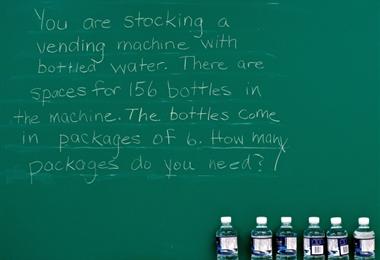 You are stocking a
vending machine with
bottled water. There are
spaces for 156 bottles in
the machine. The bottles come
in packages of 6. How many
packages do you need?